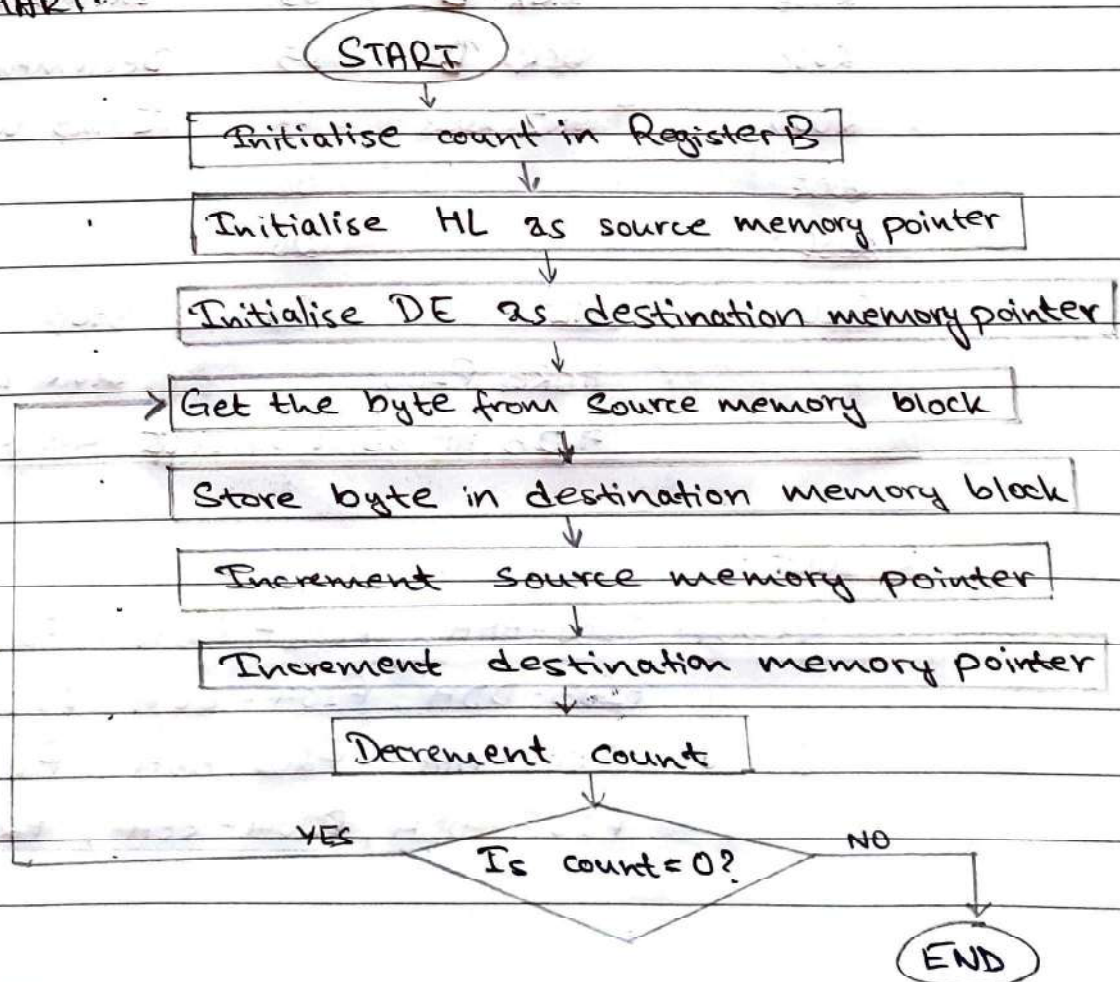 START
Initialise count in Register B
Initialise HL as source memory pointer
Initialise DE as destination memory pointer
Get the byte from source memory block
Store byte in destination memory block
Increment source memory pointer
Increment destination memory pointer
Decrement count
YES
Is count = 0?
NO
END